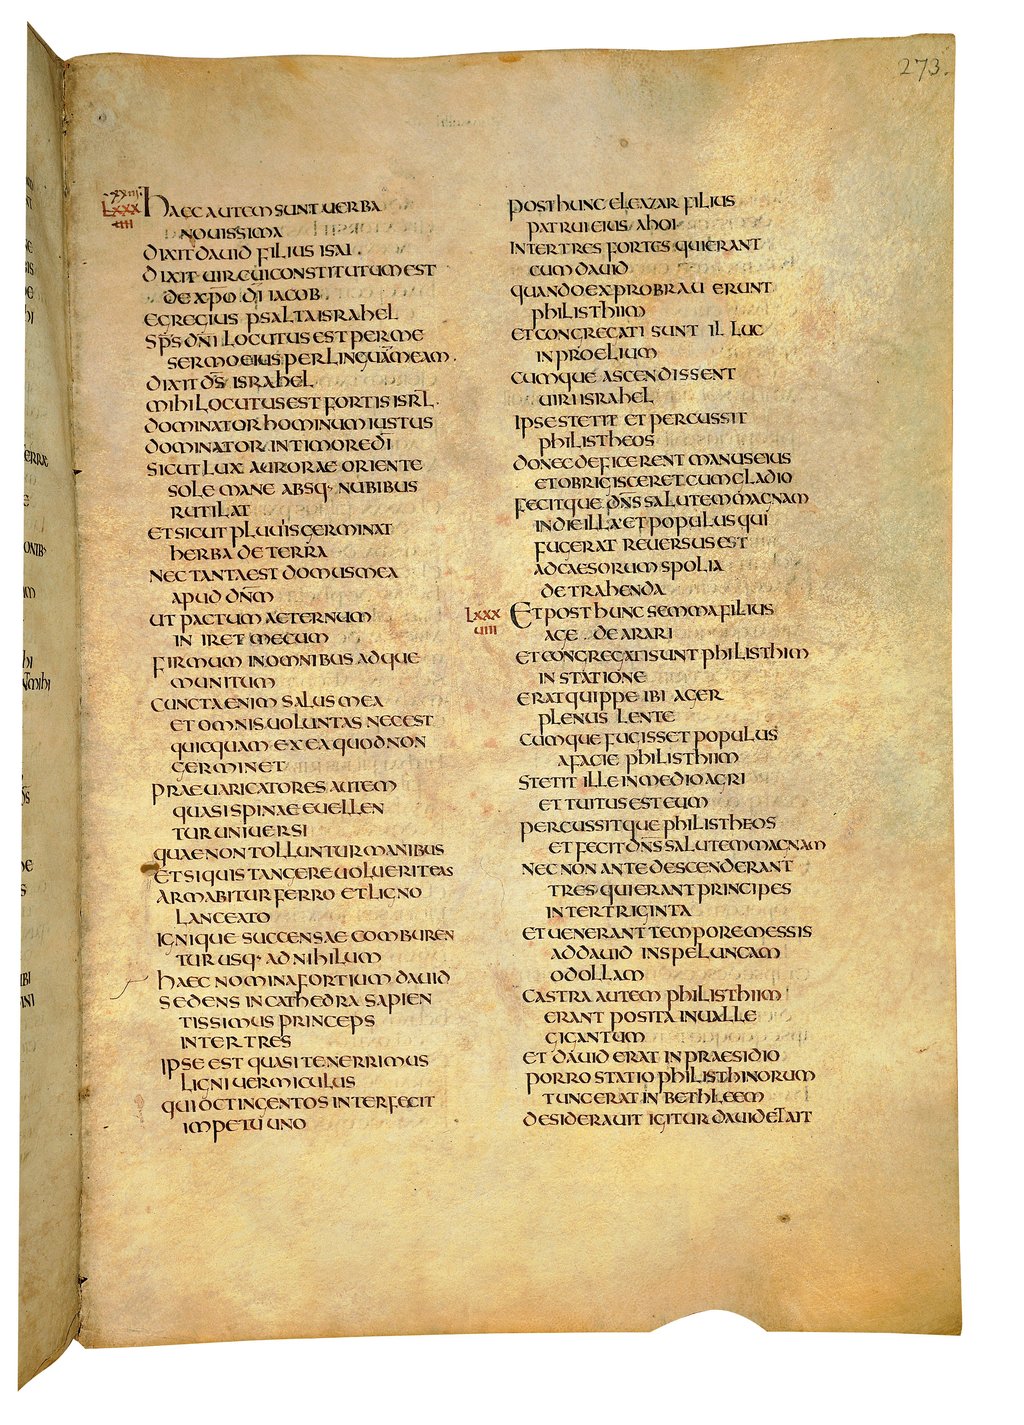 273.
LXXX
IIII
HAEC AUTEM SUNT UERBA
NOUISSIMA
DIXIT DAUID FILIUS ISAI.
DIXIT UIR CUI CONSTITUTUM EST
DE XP̅O D̅I IACOB.
EGREGIUS PSALTA ISRAHEL
SP̅S D̅N̅I LOCUTUS EST PER ME
SERMO EIUS PER LINGUAM MEAM.
DIXIT D̅S ISRAHEL
MIHI LOCUTUS EST FORTIS ISRL̅.
DOMINATOR HOMINUM IUSTUS
DOMINATOR IN TIMORE D̅I
SICUT LUX AURORAE ORIENTE
SOLE MANE ABSQ· NUBIBUS
RUTILAT
ET SICUT PLUUIS GERMINAT
HERBA DE TERRA
NEC TANTA EST DOMUS MEA
APUD D̅N̅M
UT PACTUM AETERNUM
IN IRET MECUM
FIRMUM IN OMNIBUS ADQUE
MUNITUM
CUNCTA ENIM SALUS MEA
ET OMNIS UOLUNTAS NEC EST
QUICQUAM EX EA QUOD NON
GERMINET
PRAEUARICATORES AUTEM
QUASI SPINAE EUELLEN
TUR UNIUERSI
QUAE NON TOLLUNTUR MANIBUS
ET SI QUIS TANGERE UOLUERIT EAS
ARMABITUR FERRO ET LIGNO
LANCEATO
IGNIQUE SUCCENSAE COMBUREN
TUR USQ· AD NIHILUM
HAEC NOMINA FORTIUM DAUID
SEDENS IN CATHEDRA SAPIEN
TISSIMUS PRINCEPS
INTER TRES
IPSE EST QUASI TENERRIMUS
LIGNI UERMICULUS
QUI OCTINGENTOS INTERFECIT
IMPETU UNO
POST HUNC ELEAZAR FILIUS
PATRUI EIUS AHOI
INTER TRES FORTES QUI ERANT
CUM DAUID
QUANDO EXPROBRAUERUNT
PHILISTHIIM
ET CONGREGATI SUNT ILLUC
IN PROELIUM
CUMQUE ASCENDISSENT
UIRI ISRAHEL
IPSE STETIT ET PERCUSSIT
PHILISTHEOS
DONEC DEFICERENT MANUS EIUS
ET OBRIGISCERET CUM GLADIO
FECITQUE D̅N̅S SALUTEM MAGNAM
IN DIE ILLA ET POPULUS QUI
FUGERAT REUERSUS EST
AD CAESORUM SPOLIA
DETRAHENDA
LXXX
UIIII
ET POST HUNC SEMMA FILIUS
AGE . DE ARARI
ET CONGREGATI SUNT PHILISTHIM
IN STATIONE
ERAT QUIPPE IBI AGER
PLENUS LENTE
CUMQUE FUGISSET POPULUS
A FACIE PHILISTHIIM
STETIT ILLE IN MEDIO AGRI
ET TUITUS EST EUM
PERCUSSITQUE PHILISTHEOS
ET FECIT D̅N̅S SALUTEM MAGNAM
NEC NON ANTE DESCENDERANT
TRES QUI ERANT PRINCIPES
INTER TRIGINTA
ET UENERANT TEMPORE MESSIS
AD DAUID IN SPELUNCAM
ODOLLAM
CASTRA AUTEM PHILISTHIIM
ERANT POSITA IN UALLE
GIGANTUM
ET DAUID ERAT IN PRAESIDIO
PORRO STATIO PHILISTHINORUM
TUNC ERAT IN BETHLEEM
DESIDERAUIT IGITUR DAUID ET AIT